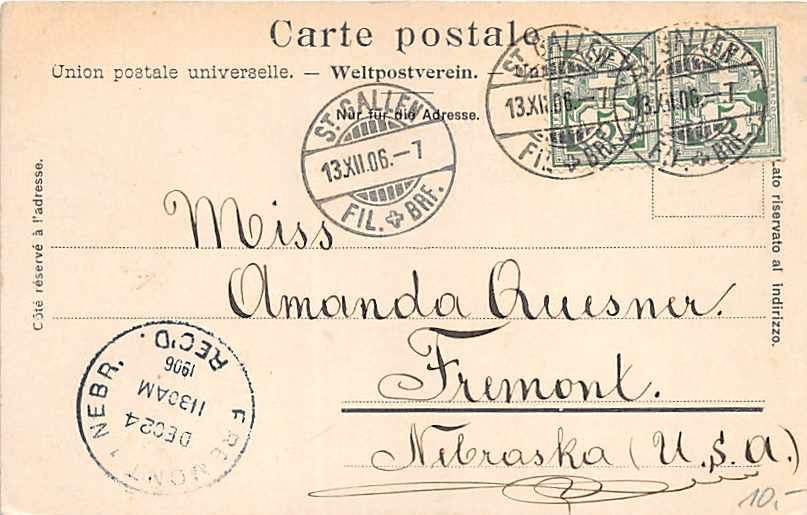 Carte postale
Union postale universelle. — Weltpostverein. —
Nur für die Adresse.
ST. GALLEN
13.XII.06.–7
FIL. BRF.
ST. GALLEN
13.XII.06.–7
FIL. BRF.
ST. GALLEN
13.XII.06.–7
FIL. BRF.
Côté réservé à l'adresse.
Lato riservato al indirizzo.
Miss
Amanda Quesner.
Fremont.
Nebraska (U.S.A.)
FREMONT, NEBR.
DEC 24
1130AM
1906
REC'D.
10,-